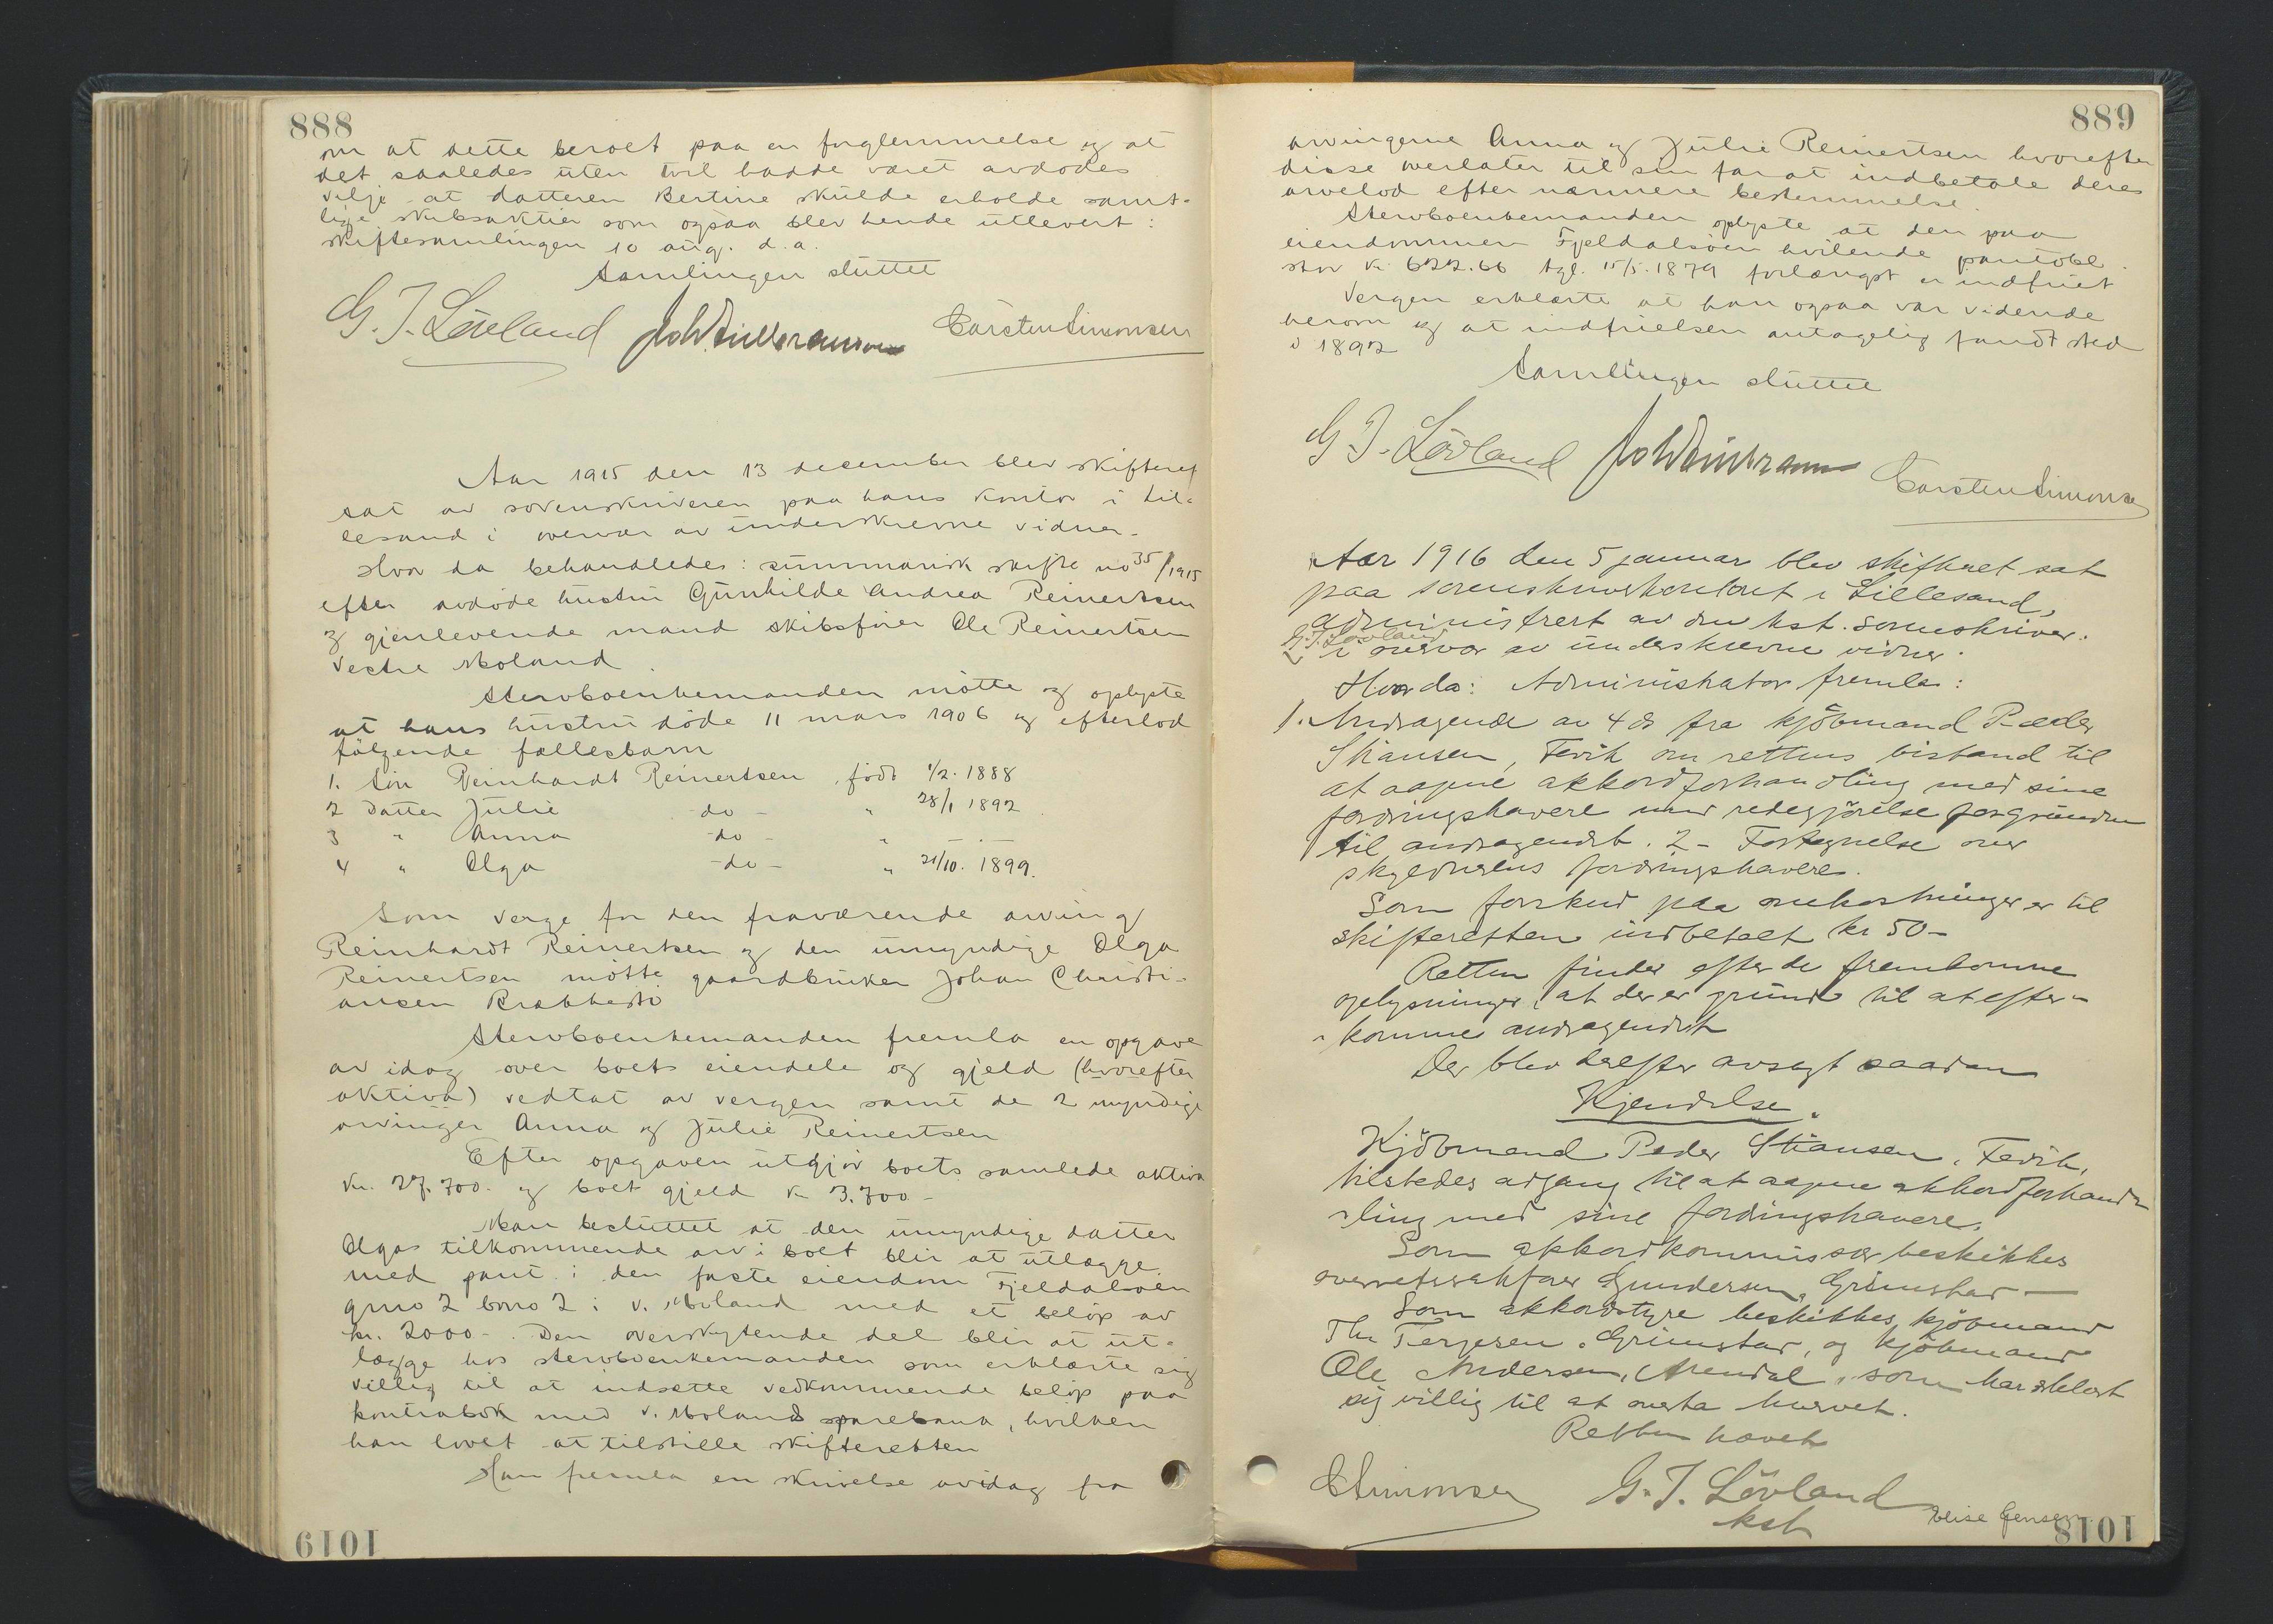 888
om at dette beroet paa en forglemmelse og at
det saaledes uten tvil hadde været avdødes
vilje at datteren Bertine skulde erholde samt-
lige skibsaktier som ogsaa blev hende utlevert i
skiftesamlingen 10 aug. d.a.
Samlingen sluttet
G. T. Løvland Carsten Simonsen
Aar 1915 den 13 december blev skifteret
sat av sorenskriveren paa hans kontor i Lil-
lesand i overvær av underskrevne vidner.
Hvor da behandledes: summarisk skifte no 35/1915
efter avdøde hustru Gunhilde Andrea Reinertsen
og gjenlevende mand skibsfører Ole Reinertsen
Vestre Moland.
Stervboenkemanden møtte og oplyste
at hans hustru døde 11 mars 1906 og efterlod
følgende fællesbarn
1. Søn Reinhardt Reinertsen, født 1/2. 1888
2 Datter Julie -do- " 28/1 1892.
3 " Anna -do- " - . -
4 " Olga -do- " 21/10. 1899.
Som verge for den fraværende arving
Reinhardt Reinertsen og den umyndige Olga
Reinertsen møtte gaardbruker Johan Christi-
ansen
Stervboenkemanden fremla en opgave
av idag over boets eiendele og gjeld (hvorefter
aktiva) vedtat av vergen samt de 2 myndige
arvinger Anna og Julie Reinertsen
Efter opgaven utgjør boets samlede aktiva
kr. 27.700.- og boet gjeld kr 3.700-
Man besluttet at den umyndige datter
Olgas tilkommende arv i boet blir at utlægge
med pant i den faste eiendom Fjeldalsøen
gno 2 bno 2 i V. Moland med et beløp av
kr. 2000-. Den overskytende del blir at ut-
lægge hos stervboenkemanden som erklærte sig
villig til at indsette vedkommende beløp paa
kontrabok med V. Molands sparebank, hvilken
han lovet at tilstille skifteretten
Han fremla en skrivelse avidag fra
1019
889
arvingerne Anna og Julie Reinertsen hvorefter
disse overlater til sin far at indbetale deres
arvelod efter nærmere bestemmelse.
Stervboenkemanden oplyste at den paa
eiendommen Fjeldalsøen hvilende pantobl.
stor kr 622.66 tgl. 15/5.1879 forlængst er indfriet
Vergen erklærte at han ogsaa var vidende
herom og at indfrielsen antagelig fandt sted
i 1892
Samlingen sluttet
G T. Løvland Carsten Simonsen
Aar 1916 den 5 januar blev skifteret sat
paa sorenskriverkontoret i Lillesand,
administrert av den kst. sorenskriver
G. T. Løvland
i overvær av underskrevne vidner.
Hvorda: Administrator fremla:
1. Andragende av 4 ds fra kjøbmand Peder
Stiansen, Fevik om rettens bistand til
at aapne akkordforhandling med sine
fordringshavere med redegjørelse for grunden
til andragendet. 2- Fortegnelse over
skyldnerens fordringshavere.
Som forskud paa omkostninger er til
skifteretten indbetalt kr 50-
Retten finder efter de fremkomne
oplysninger, at der er grund til at efter-
komme andragendet
Der blev derefter avsagt saadan
Kjendelse.
Kjøbmand Peder Stiansen, Fevik,
tilstedes adgang til at aapne akkordforhand-
ling med sine fordringshavere.
Som akkordkommissær beskikkes
overretssakfører Gundersen, Grimstad -
Som akkordstyre beskikkes kjøbmand
Th. Terjesen, Grimstad, og kjøbmand
Ole Andersen, Arendal, som har erklært
sig villig til at overta hvervet.
Retten hævet
CSimonsen G. T. Løvland Jensen
kst
1018